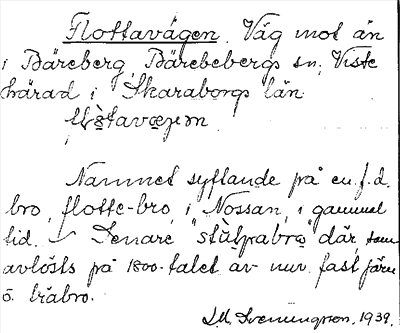 Flottavägen. Väg mot ån
i Bäreberg, Bärebebergs sn, Viste
härad i Skaraborgs län
Namnet syftande på en f.d.
bro, flotte-bro, i Nossan, i gammal
tid. – Senare "stålpabro" där som
avlösts på 1800-talet av nuv. fast järn
o. träbro.
L.M. Svenungson. 1939.